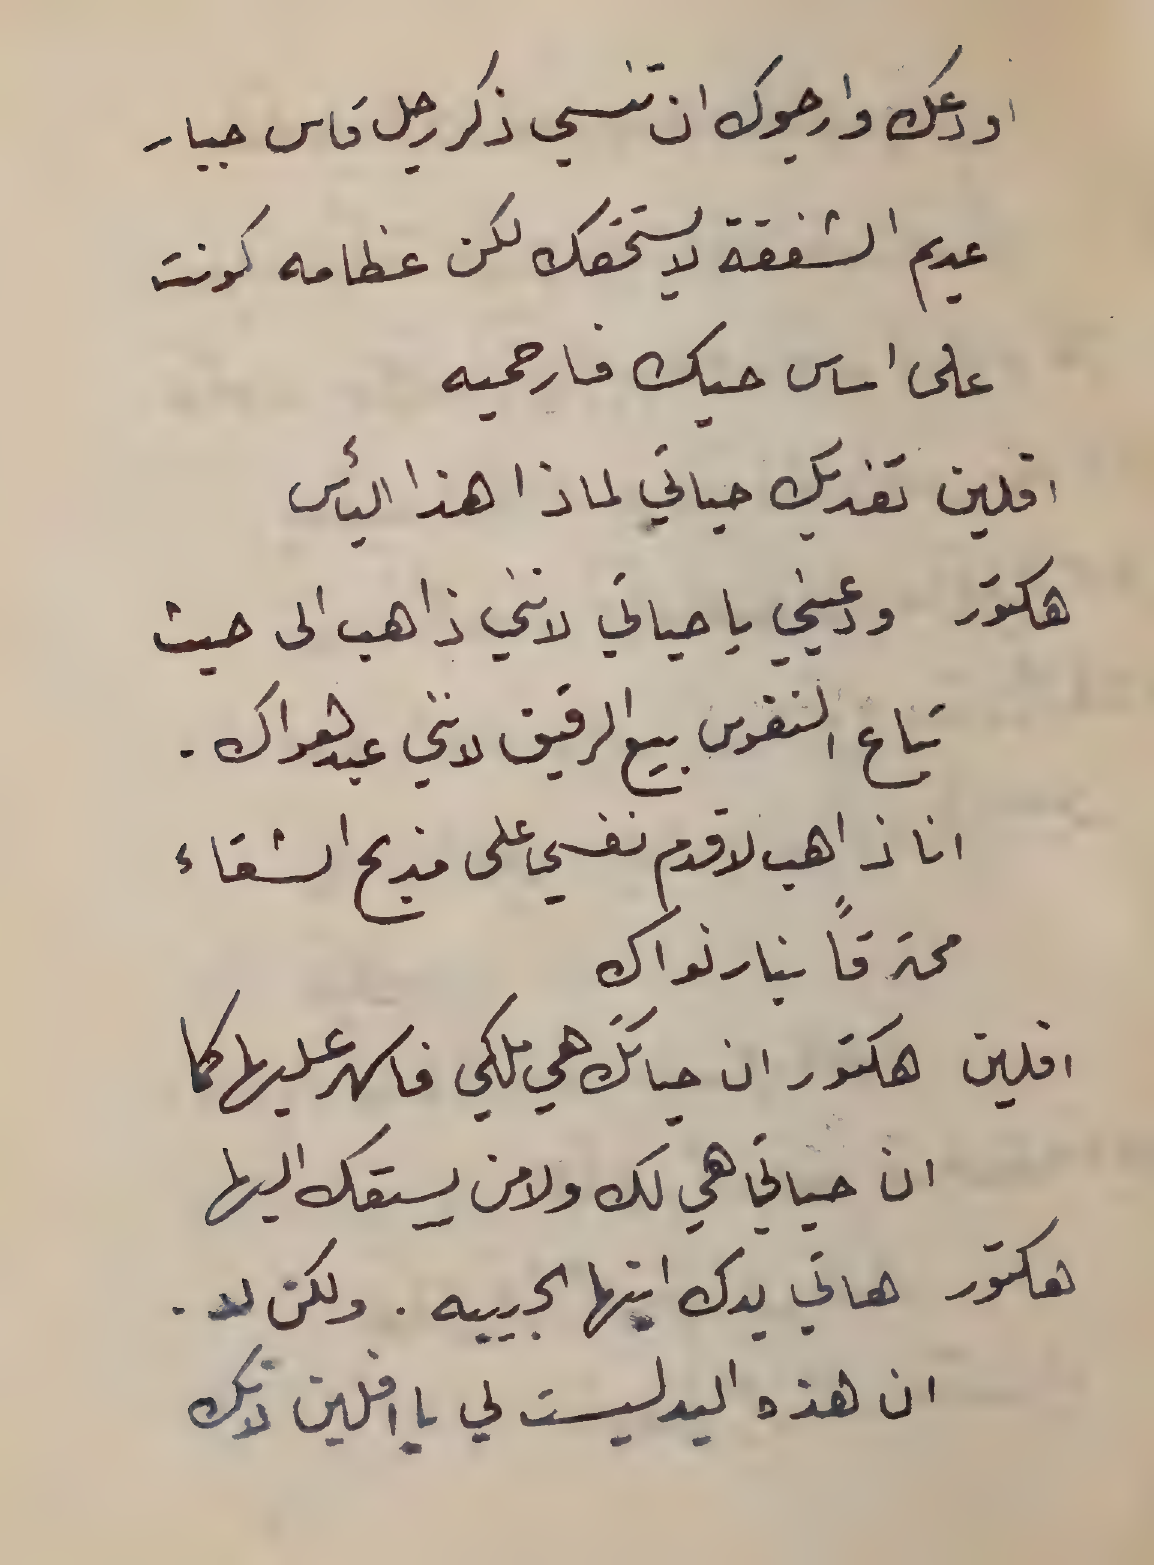 اودعك وارجوك ان تنسي ذكر رجل قاس جبار
عديم الشفقة لا يستحقك لكن عظامه كونت
على اساس حبك فارحميه
افلين تفديك حياتي لماذا هذا اليأس
هكتور ودعيني يا حياتي لانني ذاهب الى حيث
تباع النفوس بيع الرقيق لانني عبد هواك .
انا ذاهب لاقدم نفسي على مذبح الشقاء
محترقاً بنار نواك
افلين هكتور ان حياتك هي ملكي فاسهر عليها كما
ان حياتي هي لك ولا من يسبقك اليها
هكتور هاتي يدك ايتها الحبيبه . ولكن لا .
ان هذه اليد ليست لي يا افلين لانك